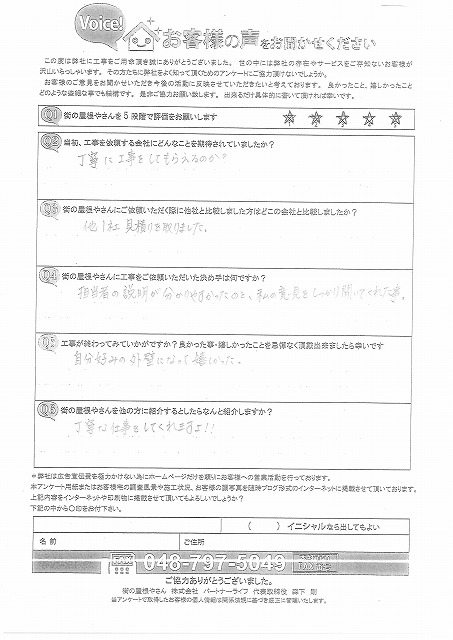 Voice!
お客様の声をお聞かせください
この度は弊社に工事をご用命頂き誠にありがとうございました。世の中には弊社の存在やサービスをご存知ないお客様が
沢山いらっしゃいます。その方たちに弊社をよく知って頂くためのアンケートにご協力頂けないでしょうか。
お客様のご意見をお聞かせいただき今後の活動に反映させていただきたいと考えております。良かったこと、嬉しかったこと
どのような些細な事でも結構です。是非ご協力お願い致します。出来るだけ具体的に書いて頂ければ幸いです。
Q1 街の屋根やさんを5段階で評価をお願いします
1 2 3 4 5
Q2 当初、工事を依頼する会社にどんなことを期待されていましたか?
丁寧に工事をしてもらえるのか?
Q3 街の屋根やさんにご依頼いただく際に他社と比較しました方はどこの会社と比較しましたか?
他1社 見積りを取りました。
Q4 街の屋根やさんに工事をご依頼いただいた決め手は何ですか?
担当者の説明が分かりやすかったのと、私の意見をしっかり聞いてくれた事。
Q5 工事が終わってみていかがですか?良かった事・嬉しかったことを忌憚なく頂戴出来ましたら幸いです
自分好みの外壁になって嬉しかった。
Q6 街の屋根やさんを他の方に紹介するとしたらなんと紹介しますか?
丁寧な仕事をしてくれますよ!!
*弊社は広告宣伝費を極力かけない為にホームページだけを頼りにお客様への営業活動を行っております。
本アンケート用紙またはお客様宅の調査風景や施工状況、お客様の顔写真を随時ブログ形式のインターネットに掲載させて頂いております。
上記内容をインターネットや印刷物に掲載させて頂いてもよろしいでしょうか?
下記の中から〇印をお付け下さい。
( ) イニシャルなら出してもよい
名前 ご住所
FAX 048-797-5049
ご協力ありがとうございました。
街の屋根やさん 株式会社 パートナーライフ 代表取締役 森下 剛
当アンケートで取得したお客様の個人情報は関係法規に基づき厳正に管理いたします。